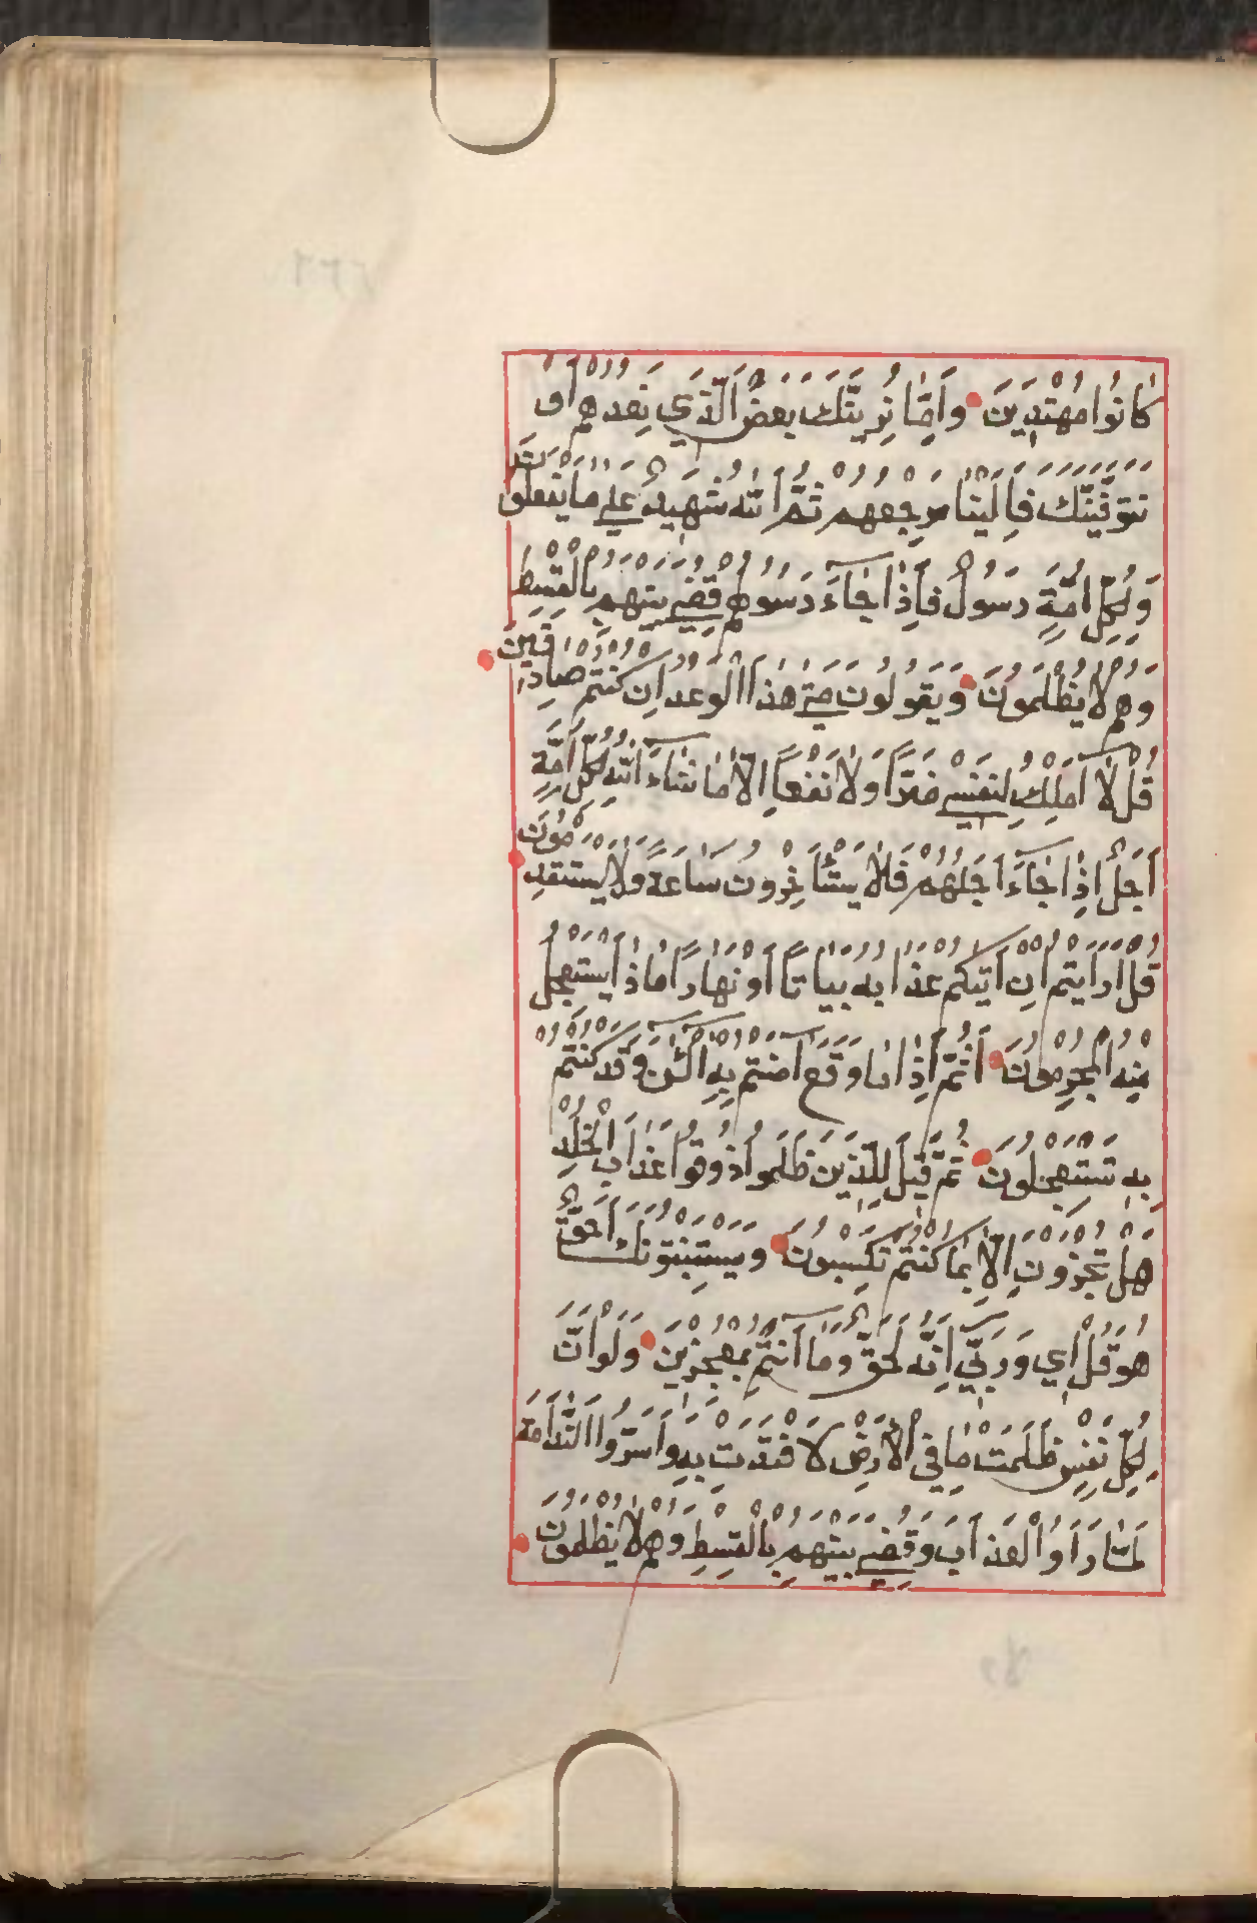 كَانُوا مُهْتَدِينَ وَاِمَّا نُرِيَنَّكَ بَعْضَ الَّذِي نَعِدُهُمْ اَوْ
نَتَوَفَّيَنَّكَ فَاِلَيْنَا مَرْجِعُهُمْ ثُمَّ اللهُ شَهِيدٌ عَلٰى مَا يَفْعَلُونَ
وَلِكُلِّ اُمَّةٍ رَسُولٌ فَاِذَا جَاءَ رَسُولُهُمْ قُضِيَ بَيْنَهُمْ بِالْقِسْطِ
وَهُمْ لَا يُظْلَمُونَ وَيَقُولُونَ مَتٰى هٰذَا الْوَعْدُ اِنْ كُنْتُمْ صَادِقِينَ
قُلْ لَا اَمْلِكُ لِنَفْسِي ضَرًّا وَلَا نَفْعًا اِلَّا مَا شَاءَ اللهُ لِكُلِّ اُمَّةٍ
اَجَلٌ اِذَا جَاءَ اَجَلُهُمْ فَلَا يَسْتَأْخِرُونَ سَاعَةً وَلَا يَسْتَقْدِمُونَ
قُلْ اَرَاَيْتُمْ اِنْ اَتٰيكُمْ عَذَابُهُ بَيَاتًا اَوْ نَهَارًا مَاذَا يَسْتَعْجِلُ
مِنْهُ الْمُجْرِمُونَ اَثُمَّ اِذَا مَا وَقَعَ اٰمَنْتُمْ بِهِ آلْـٰٔنَ وَقَدْ كُنْتُمْ
بِهِ تَسْتَعْجِلُونَ ثُمَّ قِيلَ لِلَّذِينَ ظَلَمُوا ذُوقُوا عَذَابَ الْخُلْدِ
هَلْ تُجْزَوْنَ اِلَّا بِمَا كُنْتُمْ تَكْسِبُونَ وَيَسْتَنْبِئُونَكَ اَحَقٌّ
هُوَ قُلْ اِي وَرَبِّي اِنَّهُ لَحَقٌّ وَمَا اَنْتُمْ بِمُعْجِزِينَ وَلَوْ اَنَّ
لِكُلِّ نَفْسٍ ظَلَمَتْ مَا فِي الْاَرْضِ لَافْتَدَتْ بِهِ وَاَسَرُّوا النَّدَامَةَ
لَمَّا رَاَوُا الْعَذَابَ وَقُضِيَ بَيْنَهُمْ بِالْقِسْطِ وَهُمْ لَا يُظْلَمُونَ